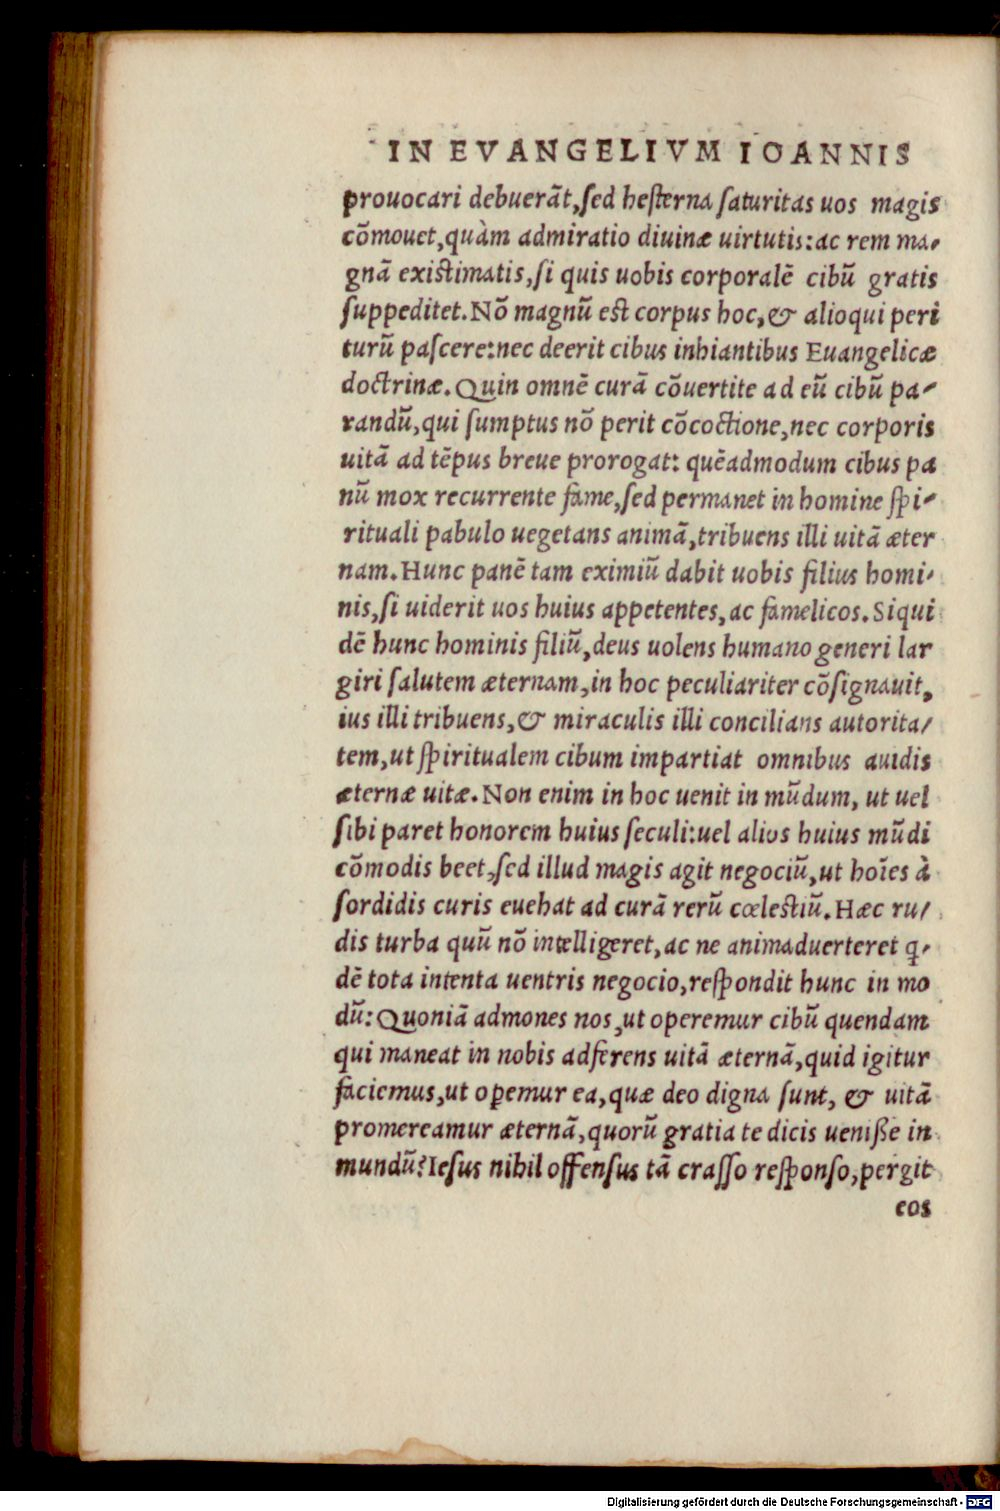 IN EVANGELIVM IOANNIS
prouocari debuerãt, sed hesterna saturitas uos magis
cõmouet, quàm admiratio diuinæ uirtutis: ac rem ma-
gnã existimatis, si quis uobis corporalẽ cibũ gratis
suppeditet. Nõ magnũ est corpus hoc, & alioqui peri
turũ pascere: nec deerit cibus inhiantibus Euangelicæ
doctrinæ. Quin omnẽ curã cõuertite ad eũ cibũ pa-
randũ, qui sumptus nõ perit cõcoctione, nec corporis
uitã ad tẽpus breue prorogat: quẽadmodum cibus pa
nũ mox recurrente fame, sed permanet in homine spi-
rituali pabulo uegetans animã, tribuens illi uitã æter
nam. Hunc panẽ tam eximiũ dabit uobis filius homi-
nis, si uiderit uos huius appetentes, ac famelicos. Siqui
dẽ hunc hominis filiũ, deus uolens humano generi lar
giri salutem æternam, in hoc peculiariter cõsignauit,
ius illi tribuens, & miraculis illi concilians autorita/
tem, ut spiritualem cibum impartiat omnibus auidis
æternæ uitæ. Non enim in hoc uenit in mũdum, ut uel
sibi paret honorem huius seculi: uel alios huius mũdi
cõmodis beet, sed illud magis agit negociũ, ut hoĩes à
sordidis curis euehat ad curã rerũ cœlestiũ. Hæc ru/
dis turba quũ nõ intelligeret, ac ne animaduerteret q̃-
dẽ tota intenta uentris negocio, respondit hunc in mo
dũ: Quoniã admones nos, ut operemur cibũ quendam
qui maneat in nobis adferens uitã æternã, quid igitur
faciemus, ut oꝑemur ea, quæ deo digna sunt, & uitã
promereamur æternã, quorũ gratia te dicis uenisse in
mundũ? Iesus nihil offensus tã crasso responso, pergit
eos
Digitalisierung gefördert durch die Deutsche Forschungsgemeinschaft - DFG